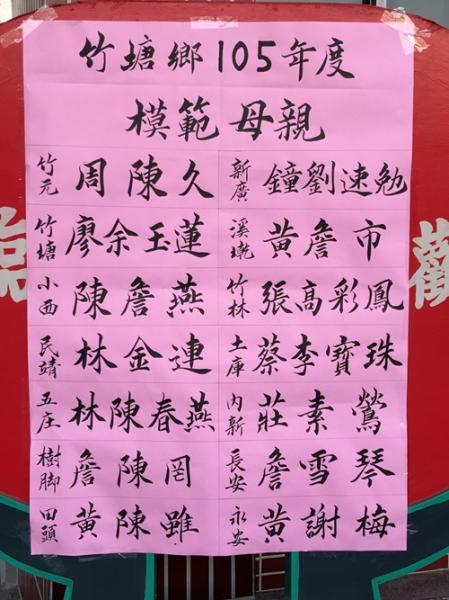 竹塘鄉105年度
模範母親
竹元 周陳久
新廣 鐘劉速勉
竹塘 廖余玉蓮
溪墘 黃詹市
小西 陳詹燕
竹林 張高彩鳳
民靖 林金連
土庫 蔡李寶珠
五庄 林陳春燕
內新 莊素鶯
樹脚 詹陳罔
長安 詹雪琴
田頭 黃陳雖
永安 黃謝梅
歡